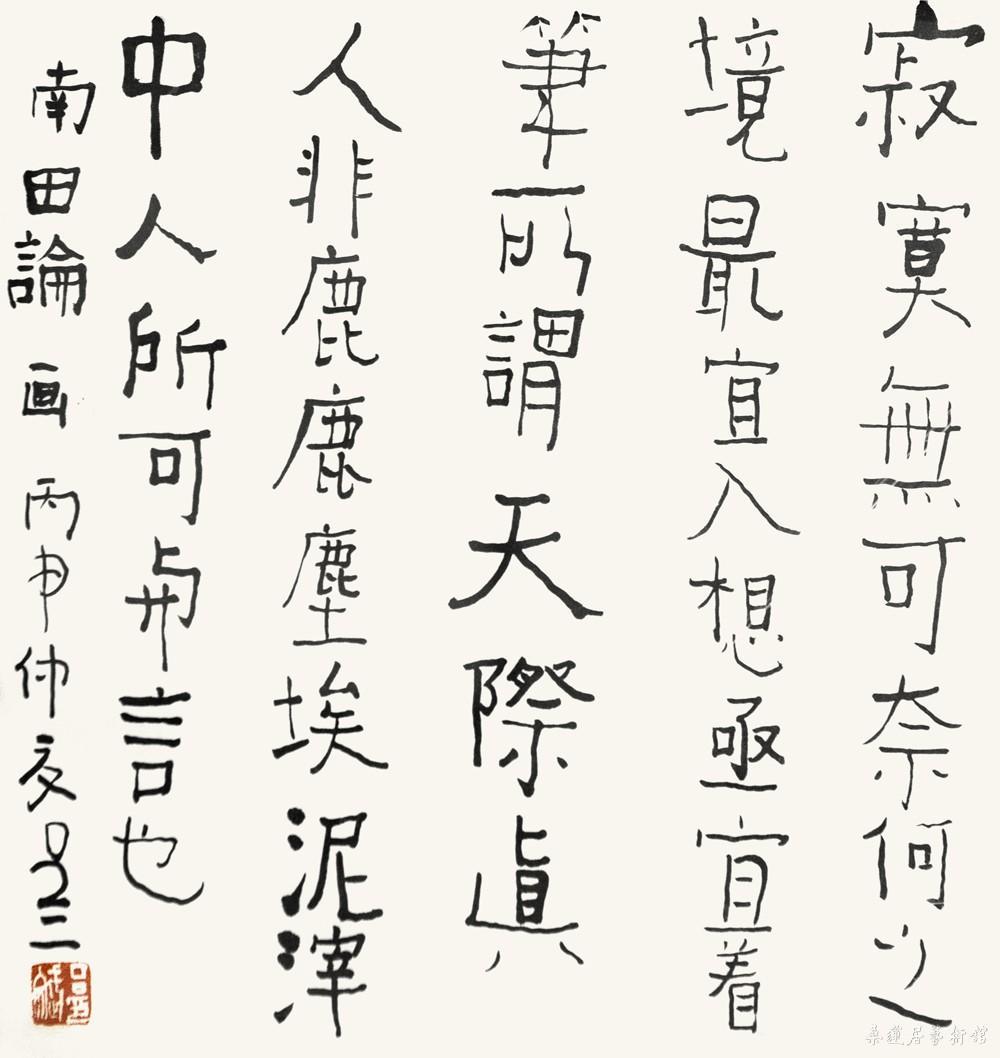 寂寞無可奈何之
境最宜入想亟宜着
筆所謂天際眞
人非鹿鹿塵埃泥滓
中人所可與言也
南田論画 丙申仲夏吕三
桑蓮居藝術館